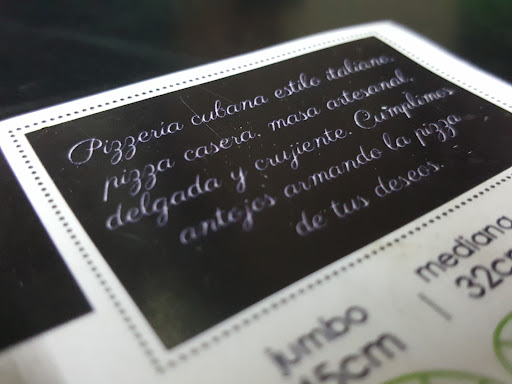 Pizzería cubana estilo italiano,
pizza casera, masa artesanal,
delgada y crujiente. Cumplimos
antojos armando la pizza
de tus deseos.
jumbo
mediana
32cm